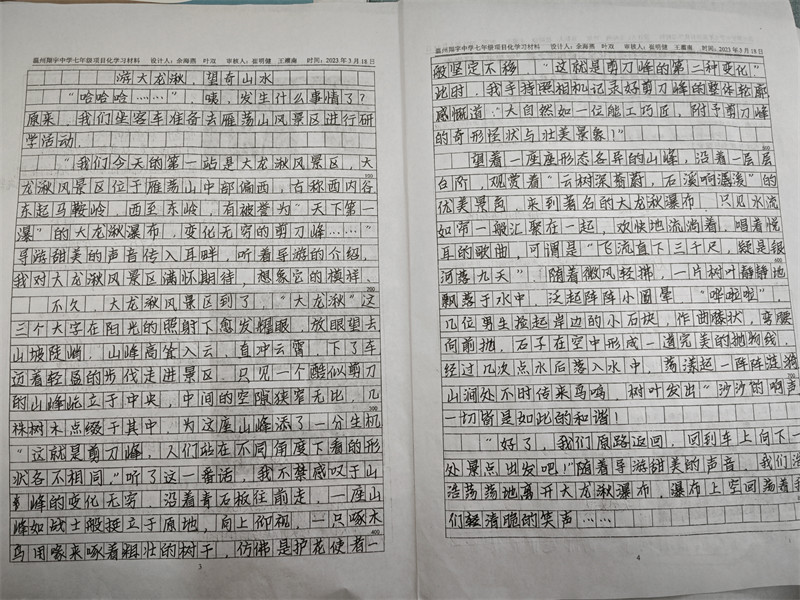 温州翔宇中学七年级项目化学习材料 设计人：余海燕 叶双 审核人：崔明健 王耀南 时间：2023年3月18日
游大龙湫，望奇山水
“哈哈哈……”，咦，发生什么事情了？
原来，我们坐客车准备去雁荡山风景区进行研
学活动。
“我们今天的第一站是大龙湫风景区，大
100
龙湫风景区位于雁荡山中部偏西，古称西内谷
东起马鞍岭，西至东岭，有被誉为“天下第一
瀑”的大龙湫瀑布，变化无穷的剪刀峰……”
导游甜美的声音传入耳畔，听着导游的介绍，
我对大龙湫风景区满怀期待，想象它的模样。
200
不久，大龙湫风景区到了，“大龙湫”这
三个大字在阳光的照射下愈发耀眼，放眼望去
山坡陡峭，山峰高耸入云，直冲云霄，下了车
迈着轻盈的步伐走进景区，只见一个酷似剪刀
的山峰屹立于中央，中间的空隙狭窄无比，几
300
株树木点缀于其中，为这座山峰添了一分生机
“这就是剪刀峰，人们站在不同角度下看的形
状各不相同，”听了这一番话，我不禁感叹于山
峰的变化无穷，沿着青石板往前走，一座山
峰如战士般挺立于原地，向上仰视，一只啄木
400
鸟用喙来啄着粗壮的树干，仿佛是护花使者一
3
温州翔宇中学七年级项目化学习材料 设计人：余海燕 叶双 审核人：崔明健 王耀南 时间：2023年3月18日
般坚定不移，“这就是剪刀峰的第二种变化”
此时，我手持照相机记录好剪刀峰的整体轮廓
感慨道：“大自然如一位能工巧匠，附予剪刀峰
的奇形怪状与壮美景象！”
500
望着一座座形态各异的山峰，沿着一层层
台阶，观赏着“云树深蓊蔚，石溪响潺湲”的
优美景声，来到著名的大龙湫瀑布，只见水流
如带一般汇聚在一起，欢快地流淌着，唱着悦
耳的歌曲，可谓是“飞流直下三千尺，疑是银
600
河落九天”，随着微风轻拂，一片树叶静静地
飘落于水中，泛起阵阵小圆晕，“哗啦啦”，
几位男生捡起岸边的小石块，作曲膝状，弯腰
向前抛，石子在空中形成一道完美的抛物线，
经过几次点水后落入水中，荡漾起一阵阵涟漪
700
山涧处不时传来鸟鸣，树叶发出“沙沙”的响声
一切皆是如此的和谐！
“好了，我们原路返回，回到车上向下一
处景点出发吧！”随着导游甜美的声音，我们浩
浩荡荡地离开大龙湫瀑布，瀑布上空回荡着我
们轻清脆的笑声……
4